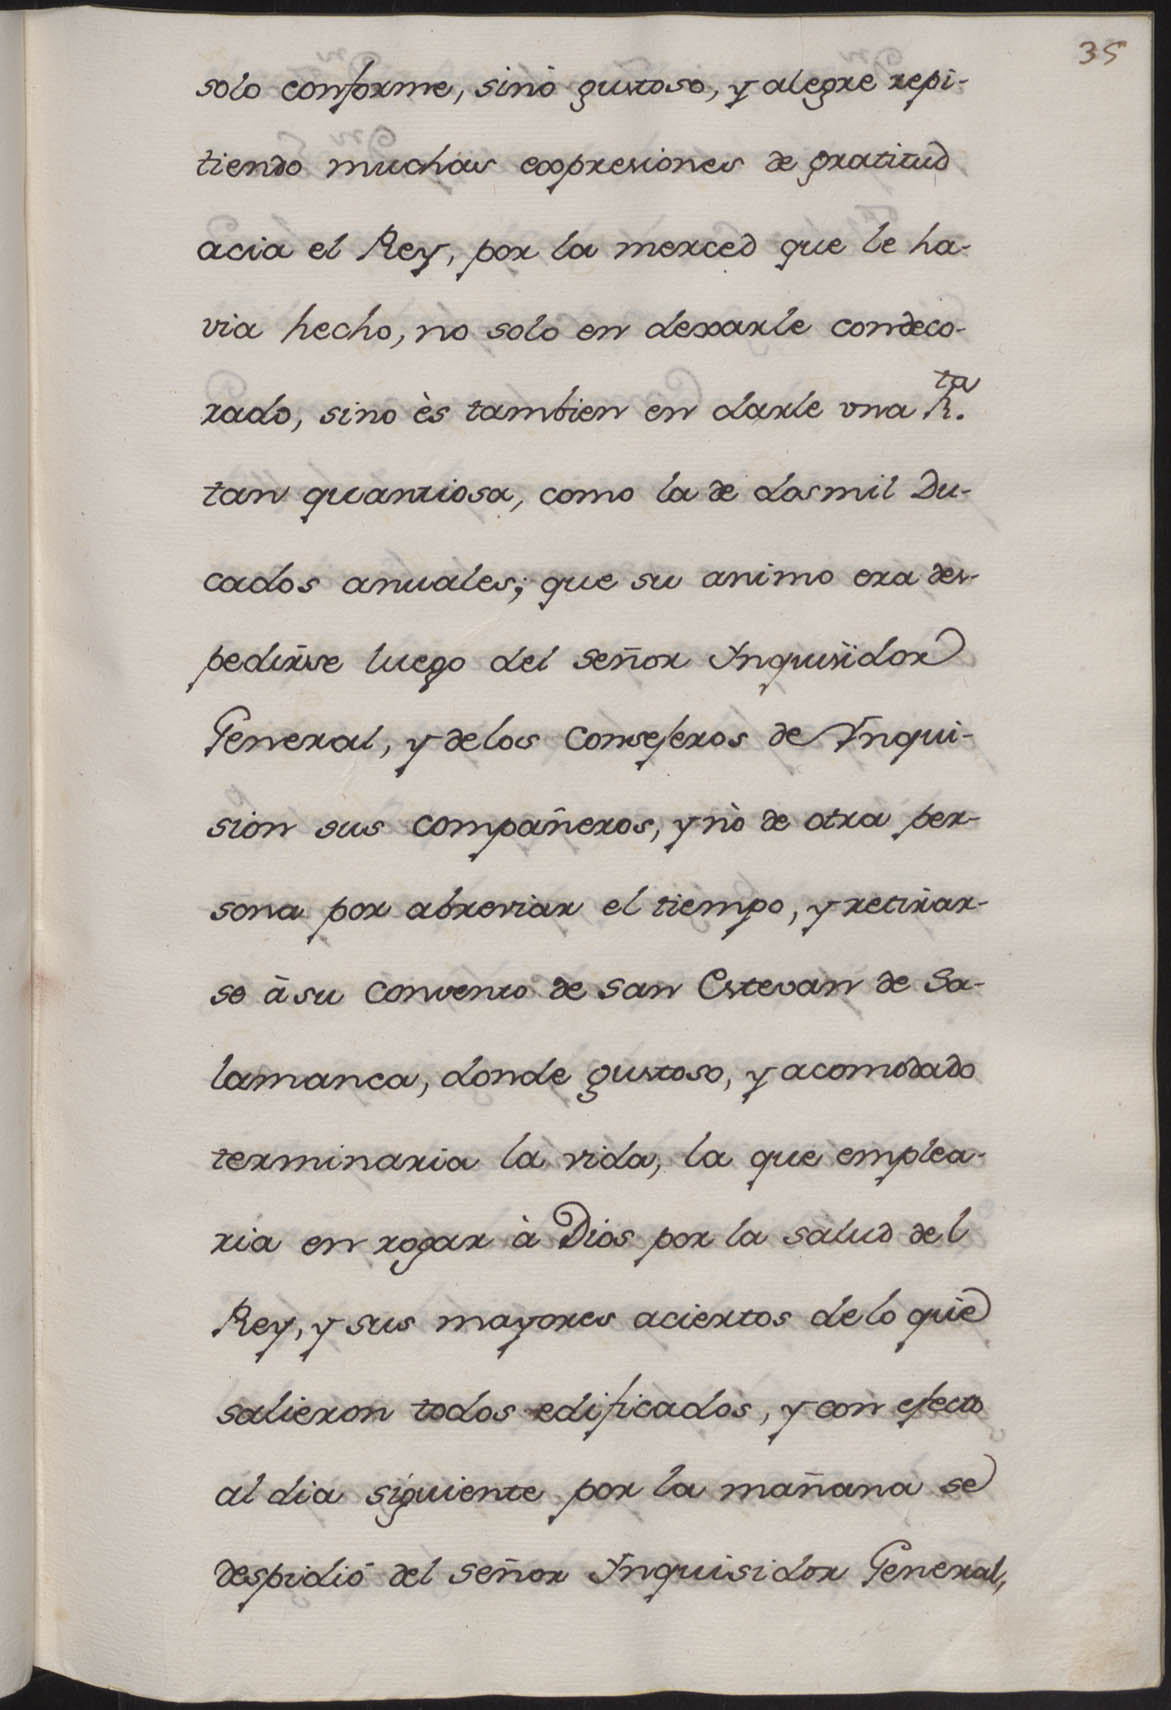 35
solo conforme, sinò gustoso, y alegre repi-
tiendo muchas expresiones de gratitud
acia el Rey, por la merced que le ha-
via hecho, no solo en dexarle condeco-
rado, sino ès tambien en darle vna R.ta
tan quantiosa, como la de dosmil Du-
cados anuales; que su animo era des-
pedirse luego del señor Ynquisidor
General, y delos Consejeros de Ynqui-
sion sus compañeros, y nò de otra per-
sona por abreviar el tiempo, y retirar-
se à su Convento de san Estevan de Sa-
lamanca, donde gustoso, y acomodado
terminaria la vida, la que emplea-
ria en rogar à Dios por la salud del
Rey, y sus mayores aciertos delo que
salieron todos edificados, y con efecto
al dia siguiente por la mañana se
despidió del señor Ynquisidor General,